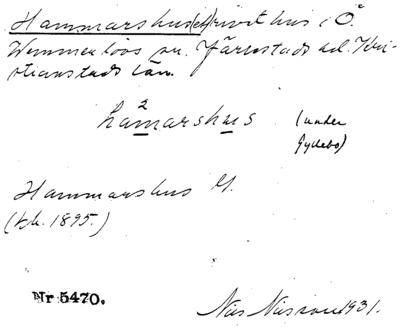 Hammarshus(et) rivet hus i Ö.
Vemmenlöos sn. Järrestads hd. Kri-
stianstads län.
2
hamarshus (under
Gyllebo)
Hammarshus G.
(tk. 1895.)
Nr 5470.
Nils Nilsson 1931.